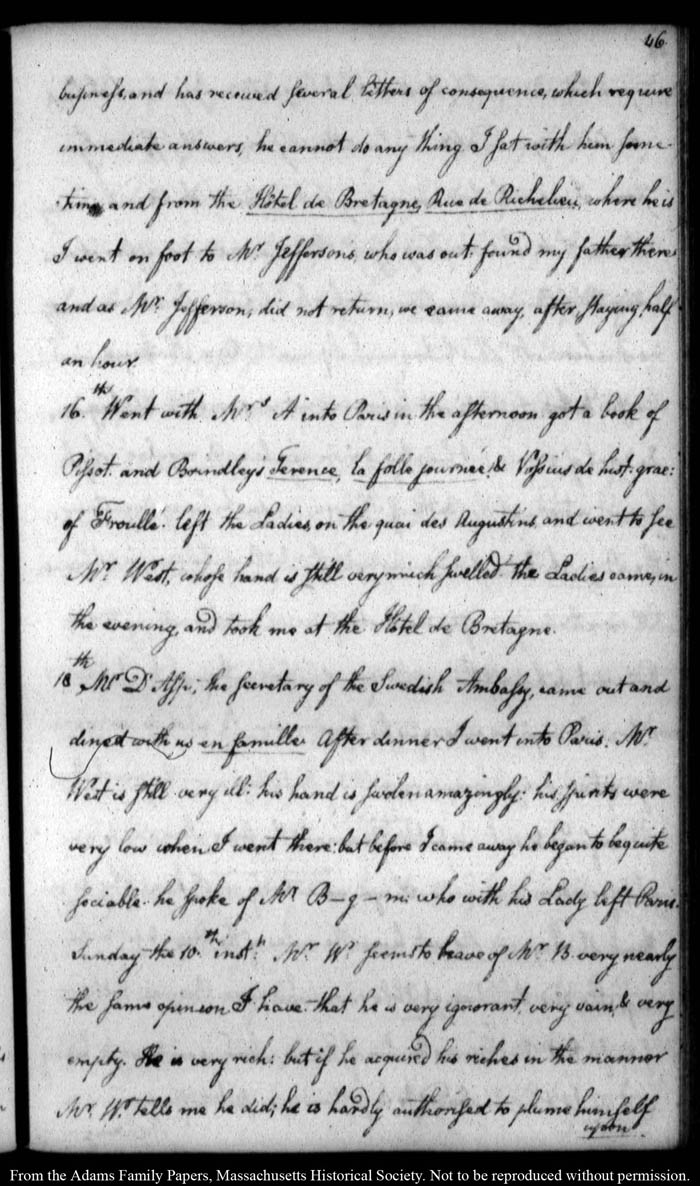 46
business, and has received several letters of consequence, which require
immediate answers, he cannot do any thing. I sat with him some
time, and from the Hôtel de Bretagne, Rue de Richelieu, where he is
I went on foot to Mr. Jefferson's, who was out. found my father there
and as Mr. Jefferson, did not return, we came away, after staying half
an hour
16.th Went with Mrs. A into Paris in the afternoon got a book of
Pissot. and Brindley's Terence, la folle journée, & Vossius de hist: grae:
of Froullé. left the Ladies, on the quai des Augustins, and went to see
Mr. West, whose hand is still very much swelled. the Ladies came, in
the evening, and took me at the Hôtel de Bretagne.
18th Mr. D'Asp; the secretary of the Swedish Ambassy, came out and
dined with us en famille. After dinner I went into Paris. Mr.
West is still very ill: his hand is swolen amazingly: his spirits were
very low when I went there: but before I came away he began to be quite
sociable. he spoke of Mr. B—g—m: who with his Lady left Paris.
Sunday the 10.th inst.: Mr. W. seems to have of Mr. B. very nearly
the same opinion I have. that he is very ignorant, very vain, & very
empty. He is very rich: but if he acquired his riches in the manner
Mr. W. tells me he did; he is hardly authorised to plume himself
upon
From the Adams Family Papers, Massachusetts Historical Society. Not to be reproduced without permission.